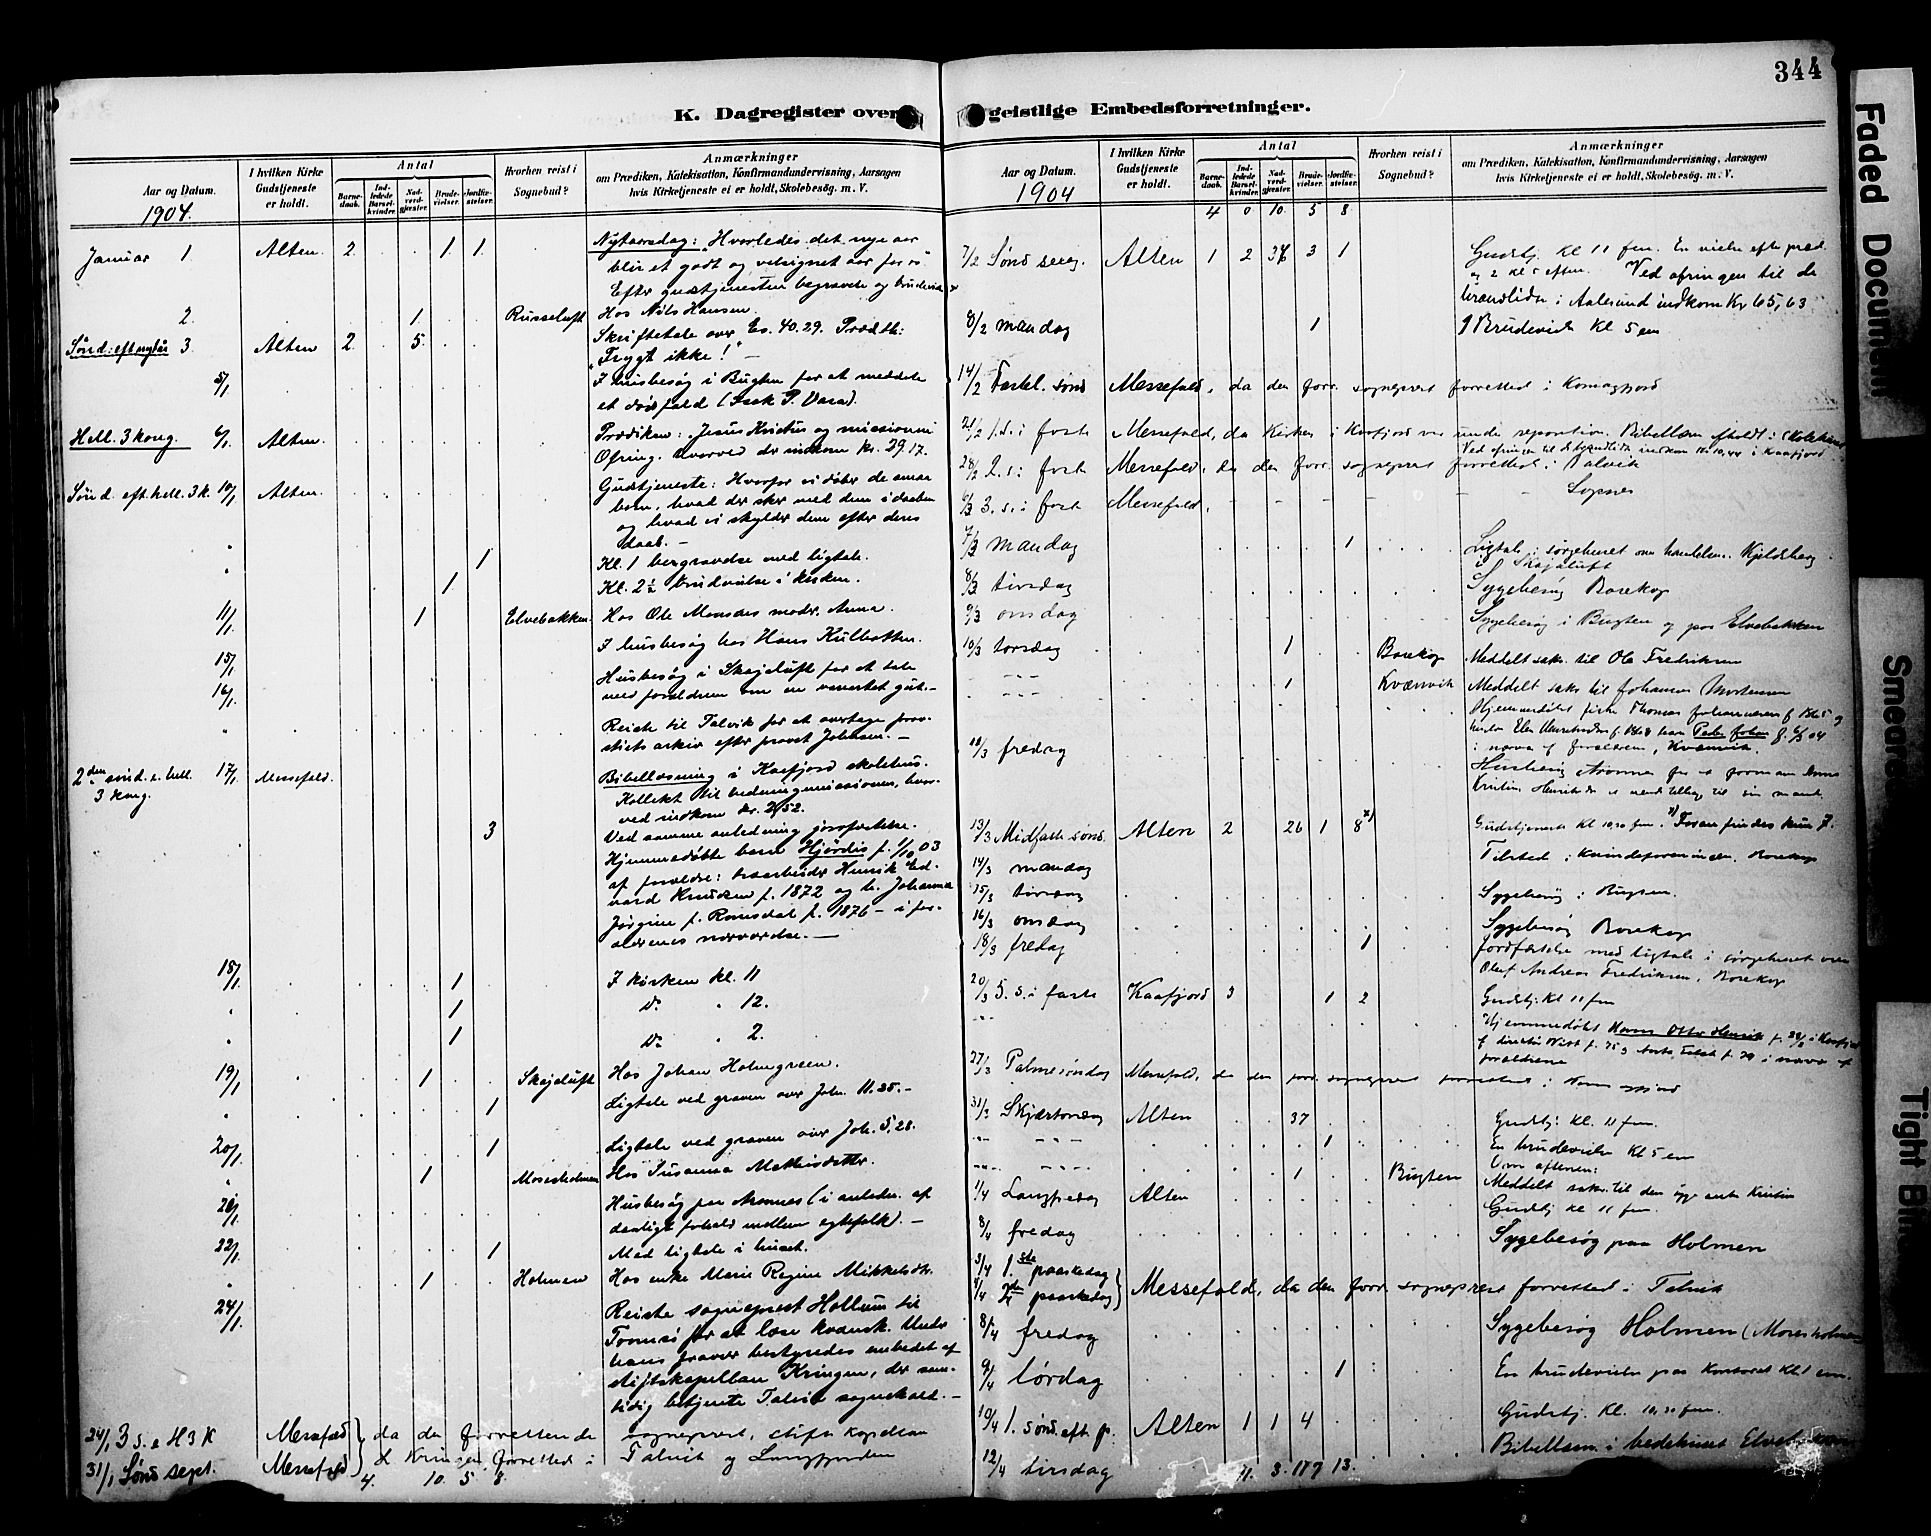 344
K. Dagregister over geistlige Embedsforretninger.
Aar og Datum.
1904.
I hvilken Kirke Gudstjeneste er holdt.
Antal
Barnedaab.
Indledede Barselkvinder.
Nadverdgjæster.
Brudevielser.
Jordfæstelser.
Hvorhen reist i Sognebud?
Anmærkninger
om Prædiken, Katekisation, Konfirmandundervisning, Aarsagen
hvis Kirketjeneste ei er holdt, Skolebesøg. m. V.
Januar 1 Alten. 2 1 1 Nytaarsdag: "Hvorledes det nye aar
blir et godt og velsignet aar for os"
Efter gudstjenesten begravelse og brudevielse
2. 1 Russeluft Hos Nils Hansen.
Sønd: eft nytår 3 Alten 2. 5. Skriftetale over Es. 40.29. Prædik:
"Frygt ikke!" —
5/1 I husbesøg i Bugten for at meddele
et dødsfald (Isak P. Vara).
Hell. 3 kong. 6/1 Alten. Prædiken: Jesus Kristus og missionen
Ofring, hvorved der indkom kr. 29.17.
Sønd. eft. hell. 3 k. 10/1 Alten. Gudstjeneste: Hvorfor vi døber de smaa
børn, hvad der sker med dem i daaben
og hvad vi skylder dem efter deres
daab. —
1 Kl. 1 begravelse med ligtale.
1 Kl. 2½ brudevielse i kirken.
11/1 1 Elvebakken Hos Ole Monsdes moder, Anna.
I husbesøg hos Hans Kulbotten.
15/1 Husbesøg i Skajaluft for at tale
16/1 med forældrene om en vanartet gut. —
Reiste til Talvik for at overtage prov-
stiets arkiv efter provst Johnsen. —
2den sønd. e. hell. 17/1 Messefald. Bibellæsning i Kaafjord skolehus.
3 kong. Kollekt til hedningemissionen, hvor-
ved indkom kr. 2,52.
3 Ved samme anledning jordfæstelse.
Hjemmedøbte barn Hjørdis f. 1/10 03
af forældre: Henrik Ed-
vard Knudsen f. 1872 og h. Johanna
Jørgine f. Romsdal f. 1876 — i for-
ældrenes nærværelse. —
18/1 1 I kirken kl. 11
1 Do " 12.
1 Do " 2.
19/1 1 Skajaluft Hos Johan Holmgreen.
1 Ligtale ved graven over Joh. 11.25. —
20/1 1 Ligtale ved graven over Joh. 5,28.
1 Mosesholmen Hos Susanna Mathisdatter.
Husbesøg paa Aronnes (i anledn. af
daarligt forhold mellem egtefolk). —
22/1 1 Med ligtale i huset.
1 Holmen Hos enke Marie Regine Mikkelsdtr.
24/1 Reiste sogneprest Hollum til
Tromsø for at læse kvænsk. Under
hans fravær bestyredes embedet af
stiftskapellan Kringen, der sam-
tidig betjente Talvik sognekald. —
24/1 3 s. e H 3 K Messefald } da den forrettende sogneprest, stiftskapellan
31/1 Sønd sept. Messefald } L Kringen, forrettede i Talvik og Langfjorden
4. 10. 5 8.
Aar og Datum.
1904
I hvilken Kirke Gudstjeneste er holdt.
Antal
Barnedaab.
Indledede Barselkvinder.
Nadverdgjæster.
Brudevielser.
Jordfæstelser.
Hvorhen reist i Sognebud?
Anmærkninger
om Prædiken, Katekisation, Konfirmandundervisning, Aarsagen
hvis Kirketjeneste ei er holdt, Skolebesøg, m. V.
4 0 10. 5 8.
7/2 Sønd sexag. Alten 1 2 36 3 1 Gudstj. Kl 11 fm. En vielse efter præd.
og 2 kl 5 eftm. Ved ofringen til de
brandlidte i Aalesund indkom Kr 65,63
8/2 mandag 1 1 Brudeviels Kl 5 em
14/2 Fastel. sønd Messefald, da den forr. sogneprest forretted i Komagfjord
21/2 1. s. i faste Messefald, da Kirken i Kaafjord var under reparation. Bibellæsn. afholdt i skolehuset
Ved ofringen til de brandlidte indkom Kr 10,44 i Kaafjord
28/2 2. s. i faste Messefald, da den forr. sogneprest forretted i Talvik
6/3 3. s. i faste Messefald. — — — — — Sopnes
7/3 mandag 1 Ligtale i sørgehuset om handelsm. Kjeldsberg
i Skajaluft
8/3 tirsdag Sygebesøg Bosekop
9/3 onsdag Sygebesøg i Bugten og paa Elvebakken
10/3 torsdag 1 Bosekop Meddelt sakr. til Ole Fredriksen
1 Kvænvik Meddelt sakr til Johannes Mortensen
Hjemmedøbt fisker Thomas Johannesen f 1865 og
hustru Peder Johan f. 6/3 04
i nærv af forældrene, Kvænvik.
11/3 fredag Husbesøg Aronnes for at formane Anna
Kristine Henriksdr at vende tilbage til sin mand
13/3 Midfaste sønd. Alten 2 26 1 8 x) Gudstjeneste Kl 10,30 fm. x) Foran findes kun 7.
14/3 mandag Tilsted i Kvindeforeningen, Bosekop
15/3 tirsdag Sygebesøg i Bugten.
16/3 onsdag Sygebesøg Bosekop
18/3 fredag 1 Jordfæstelse med ligtale i sørgehuset over
Oluf Andreas Fredriksen, Bosekop
20/3 5. s. i faste Kaafjord 3 1 2 Gudstj. Kl 11 fm
Hjemmedøbt Hans Otto Henrik i Kaafjord
forældrene
27/3 Palmesøndag Messefald, da den forr. sogneprest forretted i Komagfjord
31/3 Skjærtorsdag Alten 37 Gudstj. Kl. 11 fm.
1 En brudevielse Kl 5 em
1 Bugten Om aftenen:
Meddelt sakr. til den syge enke Kristine
1/4 Langfredag Alten Gudstj Kl 11 fm.
8/4 fredag Sygebesøg paa Holmen
3/4 1.ste paaskedag }
4/4 2den paaskedag } Messefald, da den forr. sogneprest forretted i Talvik
8/4 fredag Sygebesøg Holmen (Mosesholmen
9/4 lørdag 1 En brudevielse paa Kontoret Kl 1 em.
10/4 1. sønd. eft. p. Alten 1 1 4 Gudstj. Kl. 10,30 fm.
12/4 tirsdag Bibellæsn. i bedehuset Elvebakken
11. 3. 117 13.
Faded Document
Smeared
Tight Bin